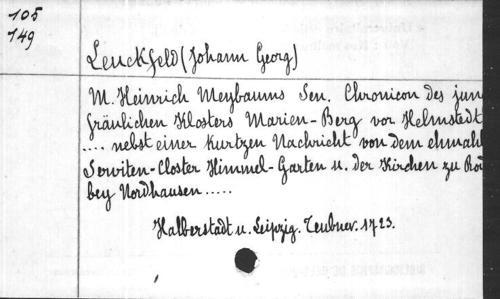 105
149
Leuckfeld (Johann Georg)
M. Heinrich Meybaums Sen. Chronicon des jun
fräulichen Klosters Marien-Berg vor Helmstedt
.... nebst einer kurtzen Nachricht von dem ehmahl
Serviten-Closter Himmel-Garten u. der Kirchen zu Rod
bey Nordhausen.....
Halberstadt u. Leipzig. Teubner. 1723.